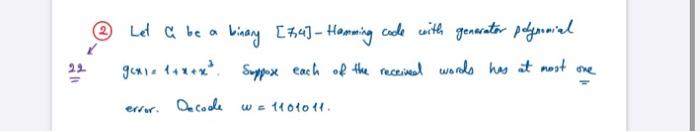 ② Let C be a binary [7,4]-Hamming code with generator polynomial
22 g(x) = 1+x+x³. Suppose each of the received words has at most one
error. Decode w = 1101011.